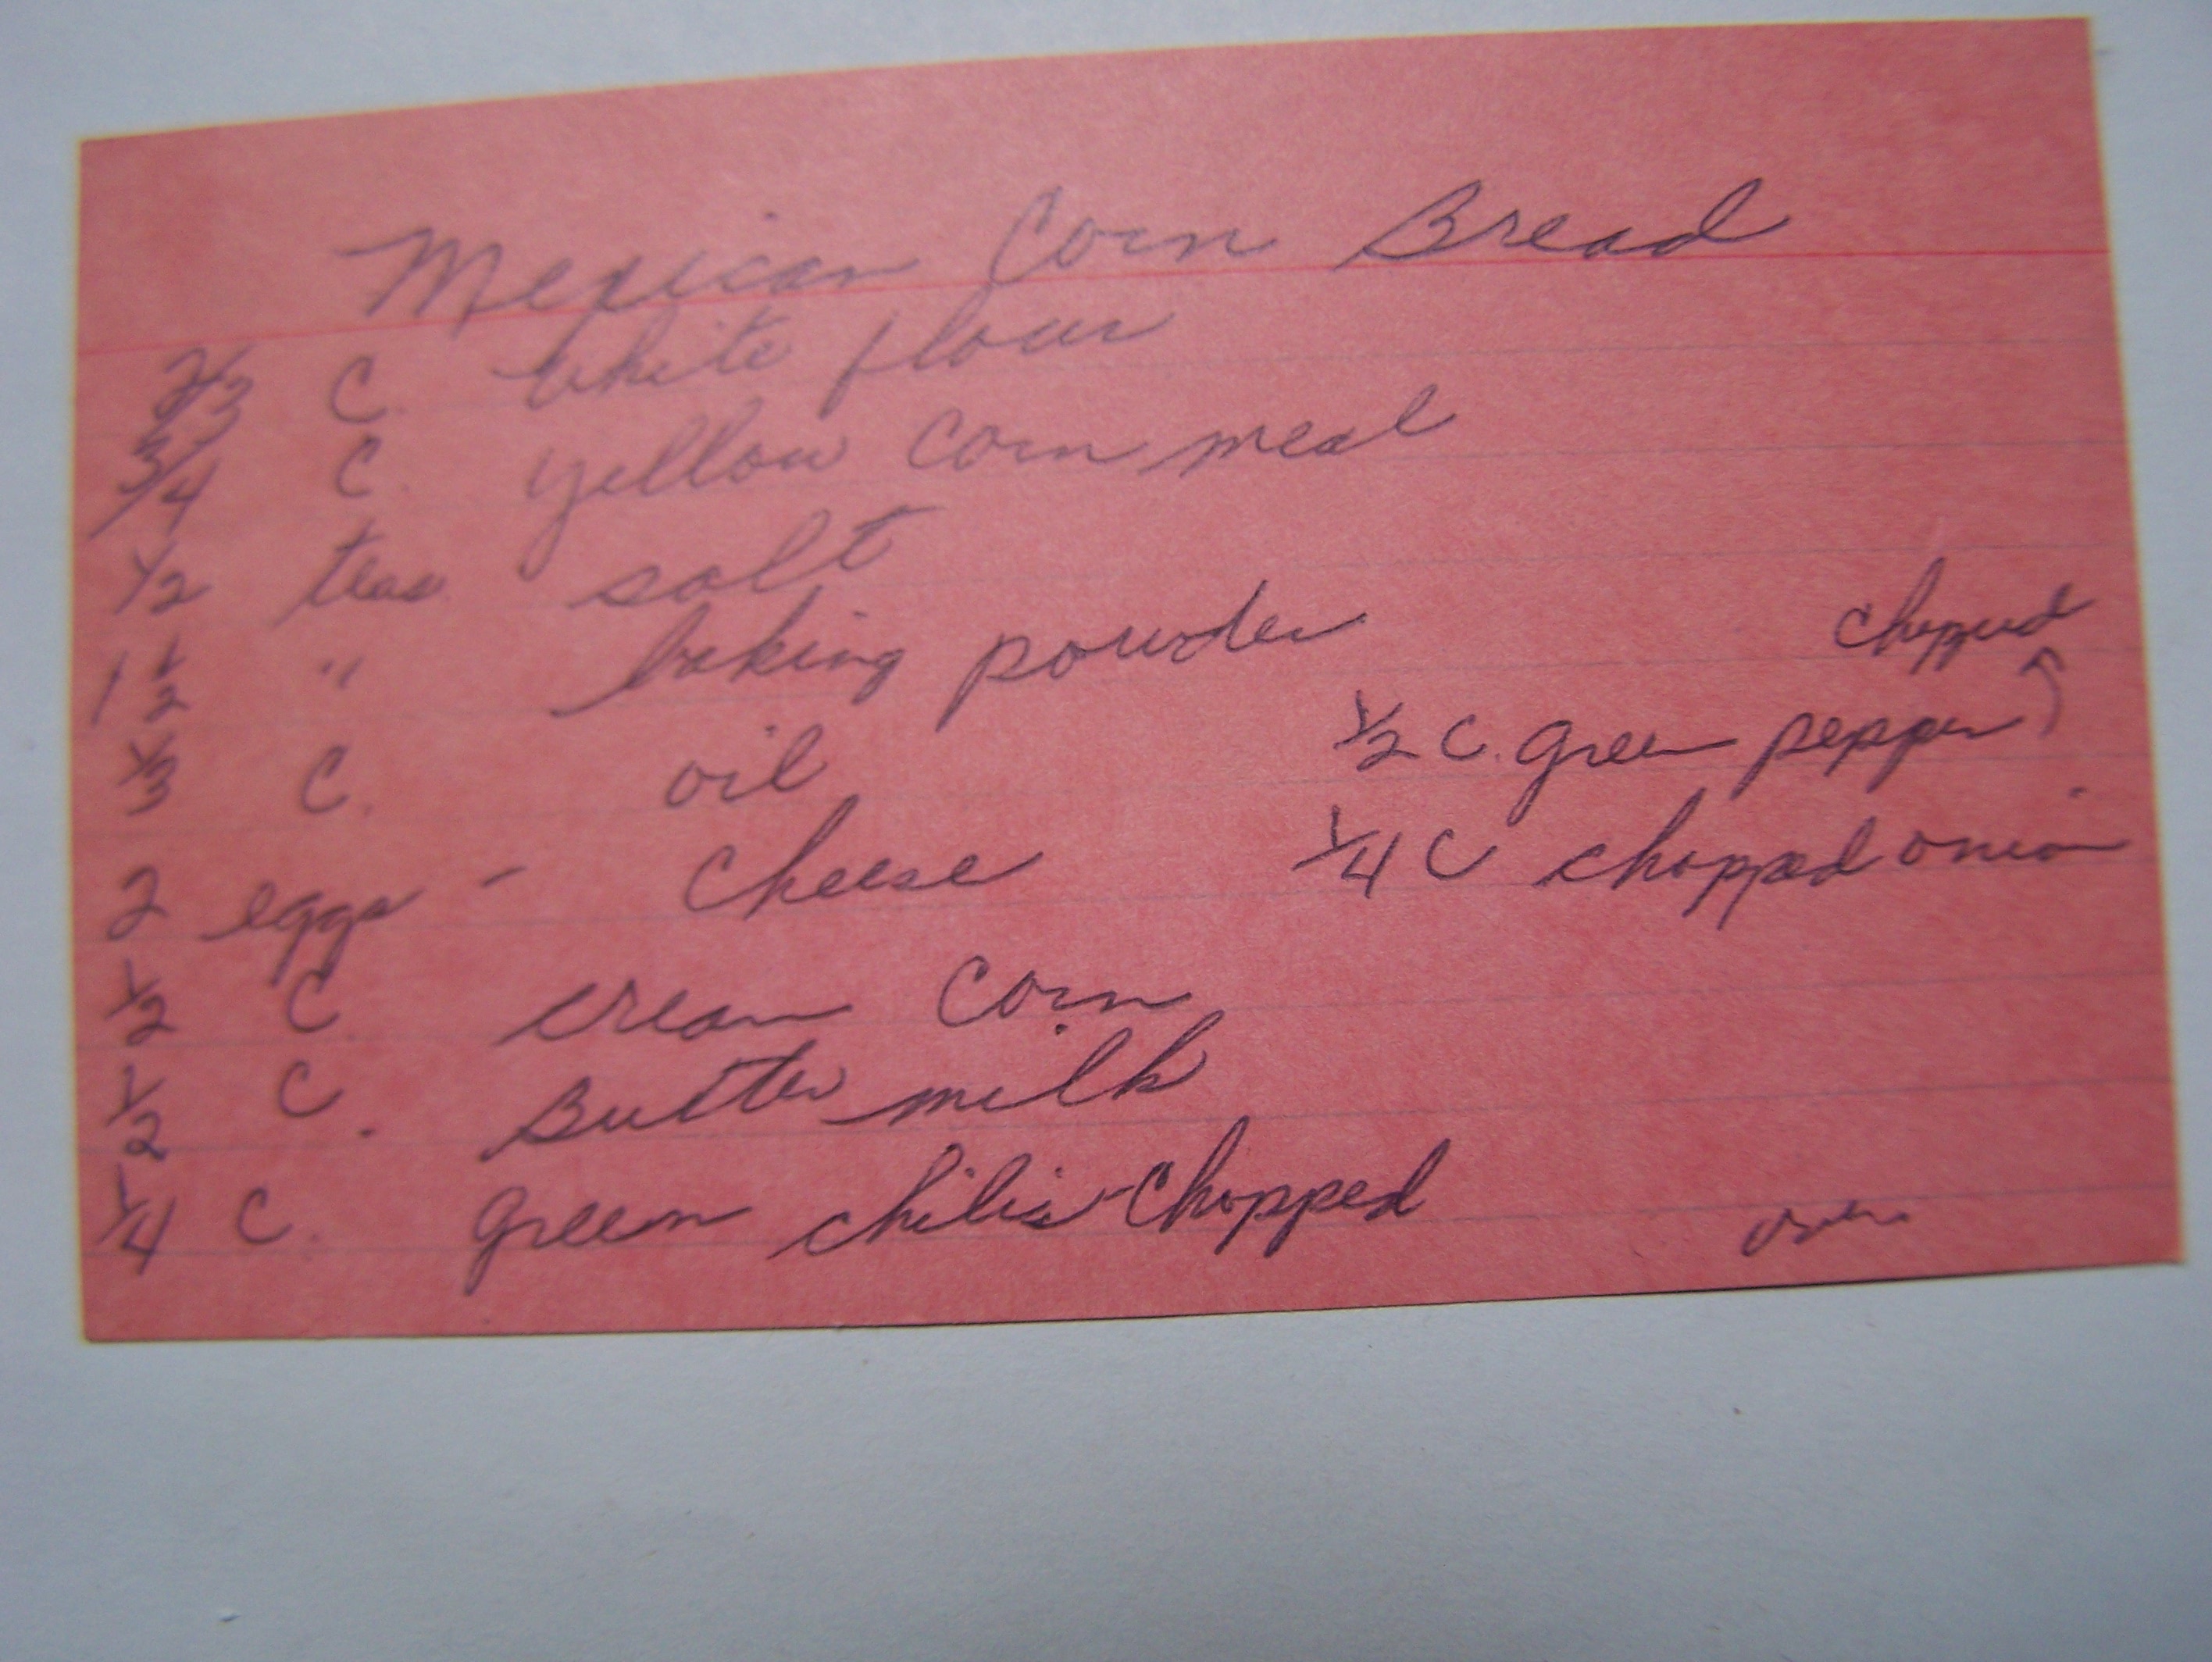 Mexican Corn Bread
2/3 C. White flour
3/4 C. yellow corn meal
1/2 teas salt
1 1/2 " baking powder
1/3 C. oil
2 eggs - Cheese
1/2 C. cream corn
1/2 C. Butter milk
1/4 C. green chilis-Chopped
chopped
1/2 C. green pepper
1/4 C chopped onion